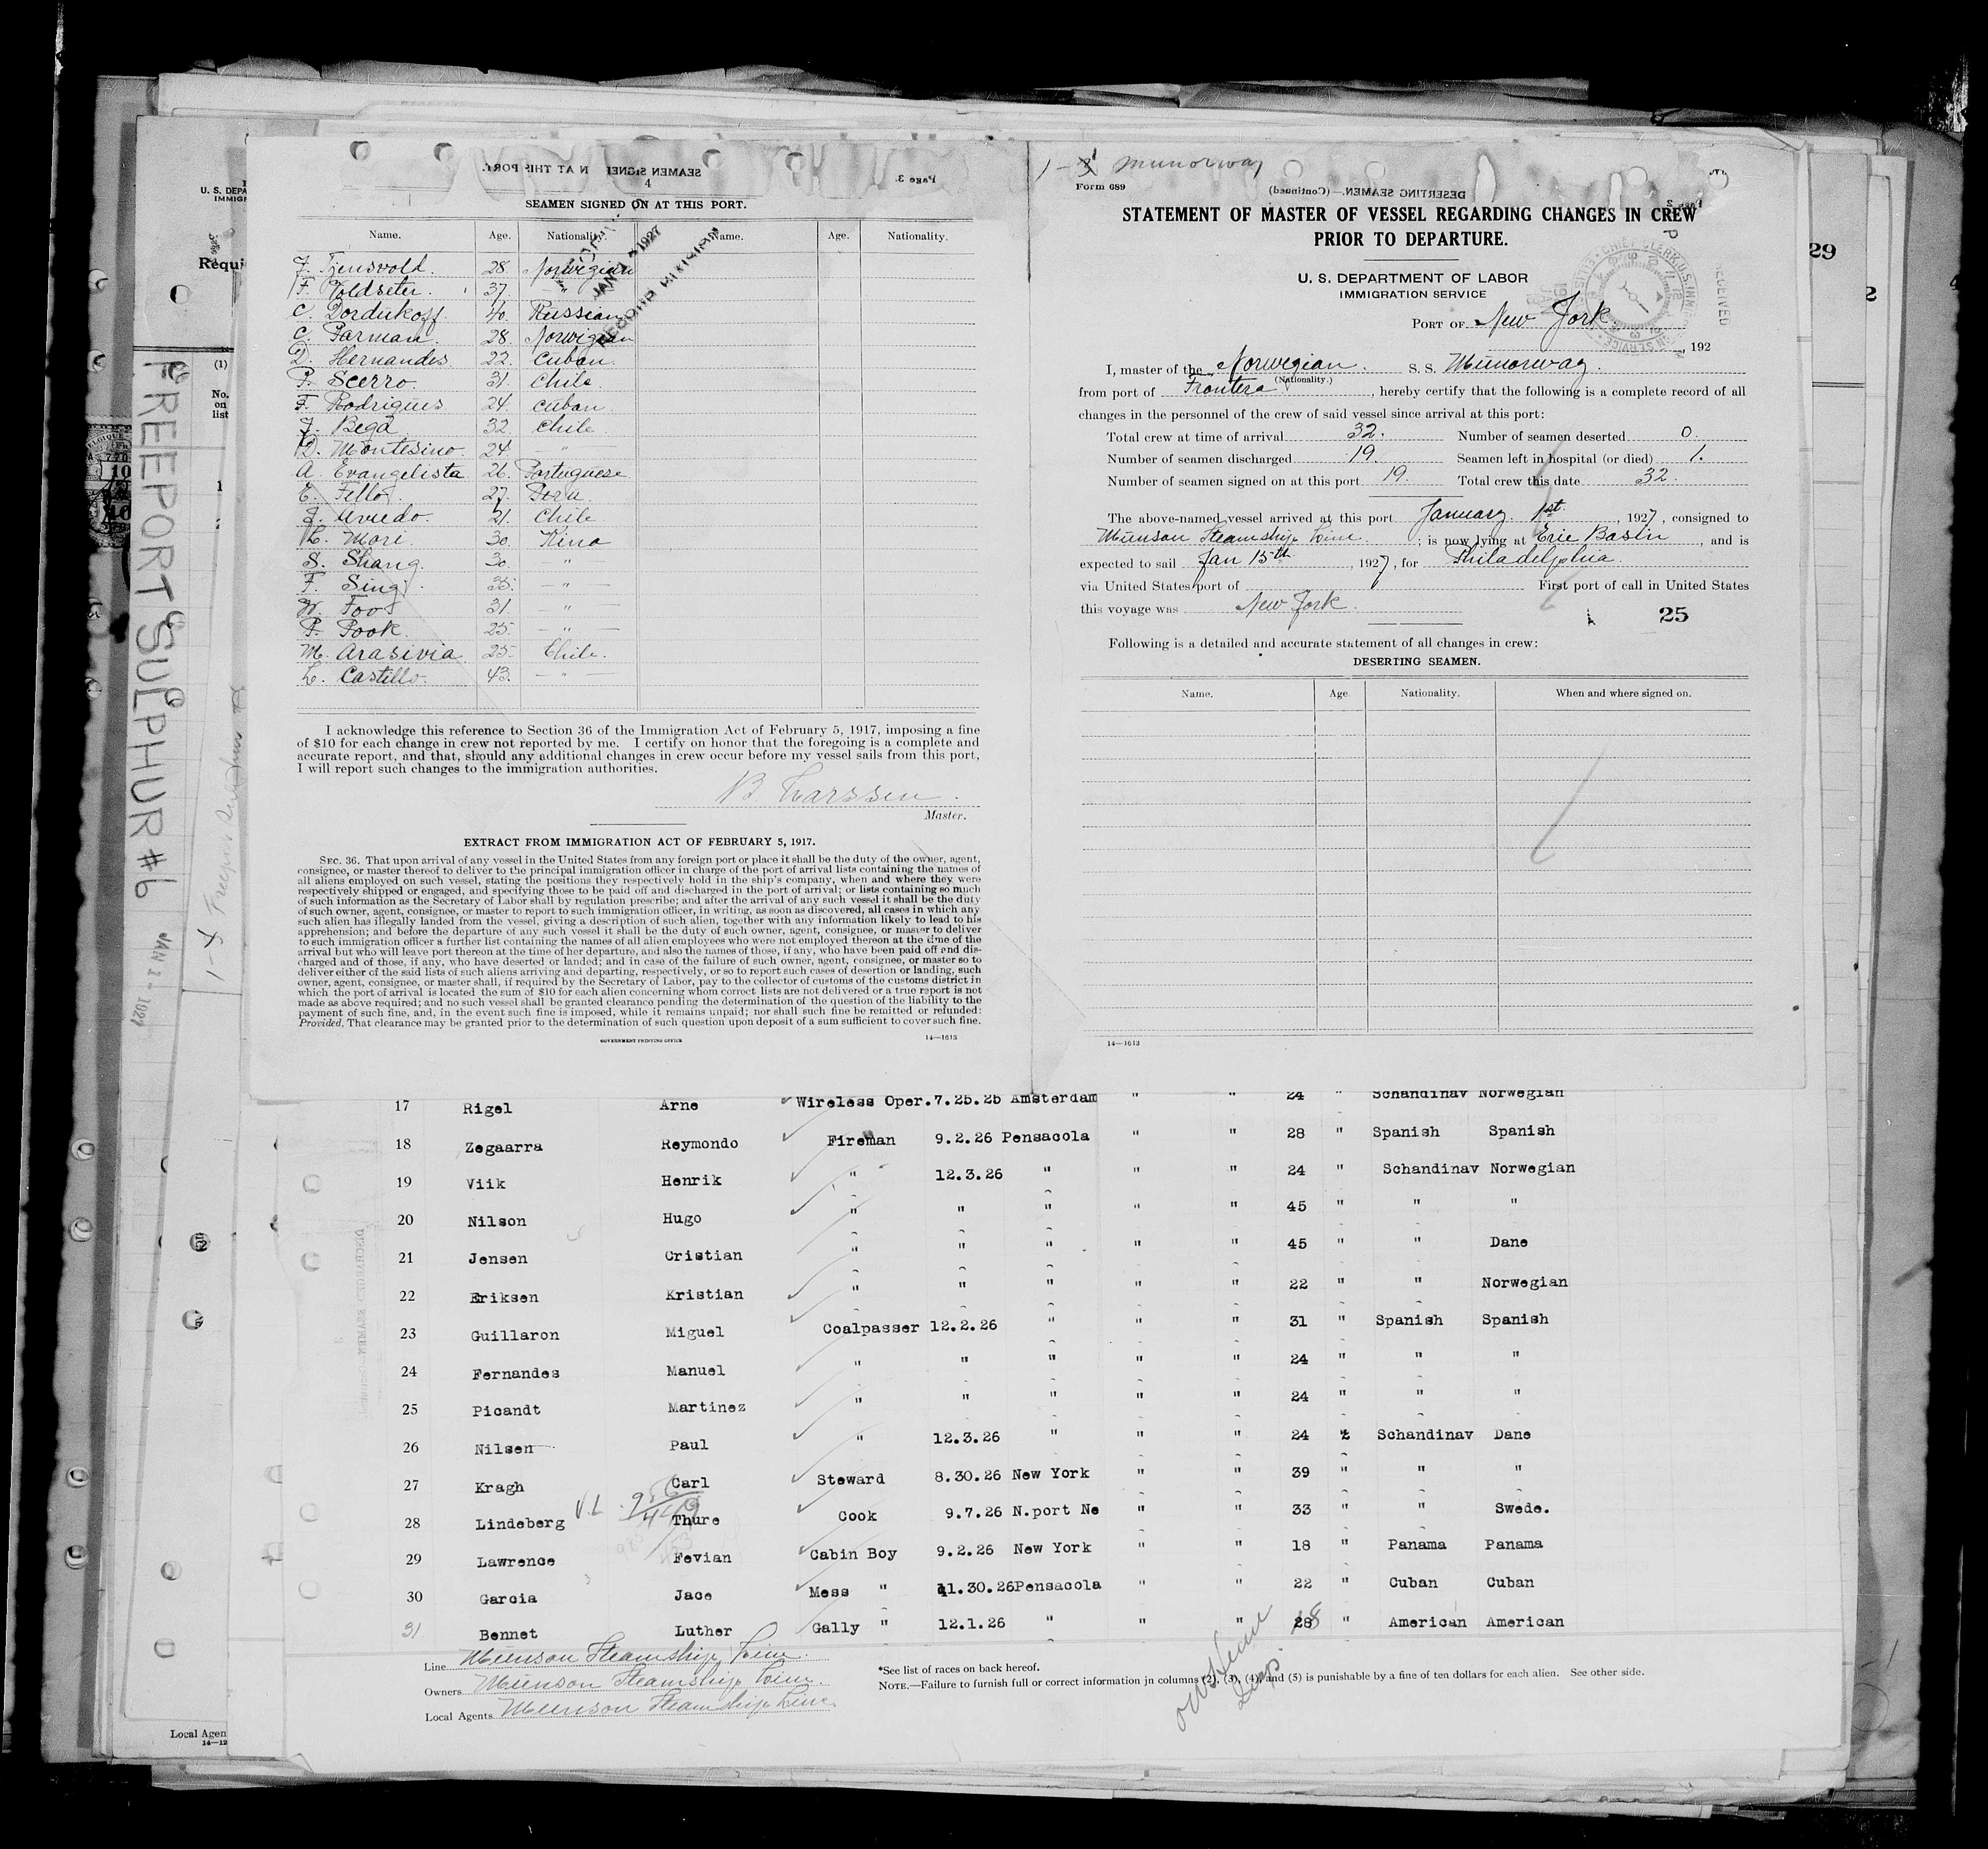 SEAMEN SIGNED ON AT THIS PORT.
Name. Age. Nationality. Name. Age. Nationality.
28. Norwegian
F. Voldseter. 37. "
C. Dordukoff. 40. Russian
C. Parman. 28. Norwigian
D. Hernandes. 22. Cuban.
P. Scerro. 31. Chile
F. Rodrigues 24. Cuban.
J. Bega 32. Chile.
D. Montesino. 24. — " —
A. Evangelista 26. Portuguese
E. Fello. 27. Peru.
J. Uviedo. 21. Chile
L. Mori. 30. Kina
S. Shang. 30. — " —
F. Sing. 35. — " —
W. Foo 31. — " —
P. Pook. 25. — " —
M. Arasivia 25. Chile.
L. Castillo. 43. — " —
I acknowledge this reference to Section 36 of the Immigration Act of February 5, 1917, imposing a fine
of $10 for each change in crew not reported by me. I certify on honor that the foregoing is a complete and
accurate report, and that, should any additional changes in crew occur before my vessel sails from this port,
I will report such changes to the immigration authorities.
B. Larssen.
Master.
EXTRACT FROM IMMIGRATION ACT OF FEBRUARY 5, 1917.
SEC. 36. That upon arrival of any vessel in the United States from any foreign port or place it shall be the duty of the owner, agent,
consignee, or master thereof to deliver to the principal immigration officer in charge of the port of arrival lists containing the names of
all aliens employed on such vessel, stating the positions they respectively hold in the ship's company, when and where they were
respectively shipped or engaged, and specifying those to be paid off and discharged in the port of arrival; or lists containing so much
of such information as the Secretary of Labor shall by regulation prescribe; and after the arrival of any such vessel it shall be the duty
of such owner, agent, consignee, or master to report to such immigration officer, in writing, as soon as discovered, all cases in which any
such alien has illegally landed from the vessel, giving a description of such alien, together with any information likely to lead to his
apprehension; and before the departure of any such vessel it shall be the duty of such owner, agent, consignee, or master to deliver
to such immigration officer a further list containing the names of all alien employees who were not employed thereon at the time of the
arrival but who will leave port thereon at the time of her departure, and also the names of those, if any, who have been paid off and dis-
charged and of those, if any, who have deserted or landed; and in case of the failure of such owner, agent, consignee, or master so to
deliver either of the said lists of such aliens arriving and departing, respectively, or so to report such cases of desertion or landing, such
owner, agent, consignee, or master shall, if required by the Secretary of Labor, pay to the collector of customs of the customs district in
which the port of arrival is located the sum of $10 for each alien concerning whom correct lists are not delivered or a true report is not
made as above required; and no such vessel shall be granted clearance pending the determination of the question of the liability to the
payment of such fine, and, in the event such fine is imposed, while it remains unpaid; nor shall such fine be remitted or refunded:
Provided, That clearance may be granted prior to the determination of such question upon deposit of a sum sufficient to cover such fine.
GOVERNMENT PRINTING OFFICE 14—1613
Munorway
Form 689
STATEMENT OF MASTER OF VESSEL REGARDING CHANGES IN CREW
PRIOR TO DEPARTURE.
U. S. DEPARTMENT OF LABOR
IMMIGRATION SERVICE
PORT OF New York
, 192
I, master of the Norwegian. S. S. Munorway.
(Nationality.)
from port of Frontera, hereby certify that the following is a complete record of all
changes in the personnel of the crew of said vessel since arrival at this port:
Total crew at time of arrival 32. Number of seamen deserted 0.
Number of seamen discharged 19. Seamen left in hospital (or died) 1.
Number of seamen signed on at this port 19. Total crew this date 32.
The above-named vessel arrived at this port January 1st, 1927, consigned to
Munson Steamship Line.; is now lying at Erie Basin, and is
expected to sail Jan 15th, 1927, for Philadelphia.
via United States port of First port of call in United States
this voyage was New York.
25
Following is a detailed and accurate statement of all changes in crew:
DESERTING SEAMEN.
Name. Age. Nationality. When and where signed on.
14—1613
17 Rigel Arne Wireless Oper. 7.25.25 Amsterdam " " 24 " Schandinav Norwegian
18 Zegaarra Reymondo Fireman 9.2.26 Pensacola " " 28 " Spanish Spanish
19 Viik Henrik " 12.3.26 " " " 24 " Schandinav Norwegian
20 Nilson Hugo " " " " " 45 " " "
21 Jensen Cristian " " " " " 45 " " Dane
22 Eriksen Kristian " " " " " 22 " " Norwegian
23 Guillaron Miguel Coalpasser 12.2.26 " " " 31 " Spanish Spanish
24 Fernandes Manuel " " " " " 24 " " "
25 Picandt Martinez " " " " " 24 " " "
26 Nilsen Paul " 12.3.26 " " " 24 " Schandinav Dane
27 Kragh Carl Steward 8.30.26 New York " " 39 " " "
28 Lindeberg Thure Cook 9.7.26 N.port Ne " " 33 " " Swede.
29 Lawrence Fevian Cabin Boy 9.2.26 New York " " 18 " Panama Panama
30 Garcia Jace Mess " 11.30.26 Pensacola " " 22 " Cuban Cuban
31 Bennet Luther Gally " 12.1.26 " " " 28 " American American
Line Munson Steamship Line.
Owners Munson Steamship Line.
Local Agents Munson Steamship Line.
*See list of races on back hereof.
NOTE.—Failure to furnish full or correct information in columns (2), (3), (4), and (5) is punishable by a fine of ten dollars for each alien. See other side.
FREEPORT SULPHUR #6
JAN 2 - 1927
U. S. DEPA
IMMIGR
Requi
(1)
No.
on
list
Local Agen
29